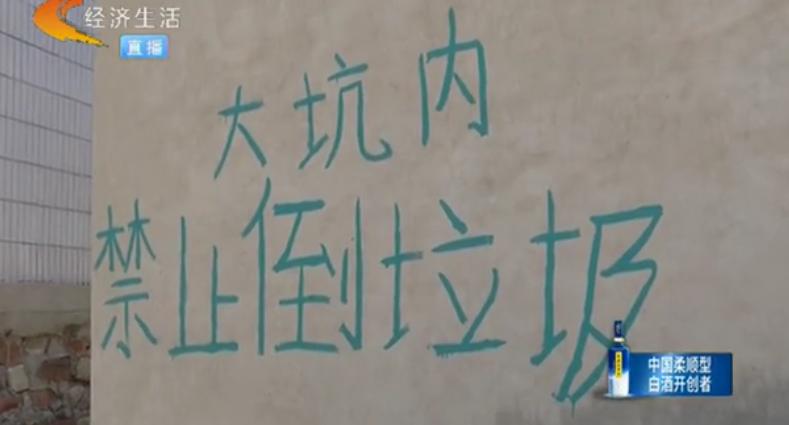 经济生活
直播
大坑内
禁止倒垃圾
中国柔顺型
白酒开创者